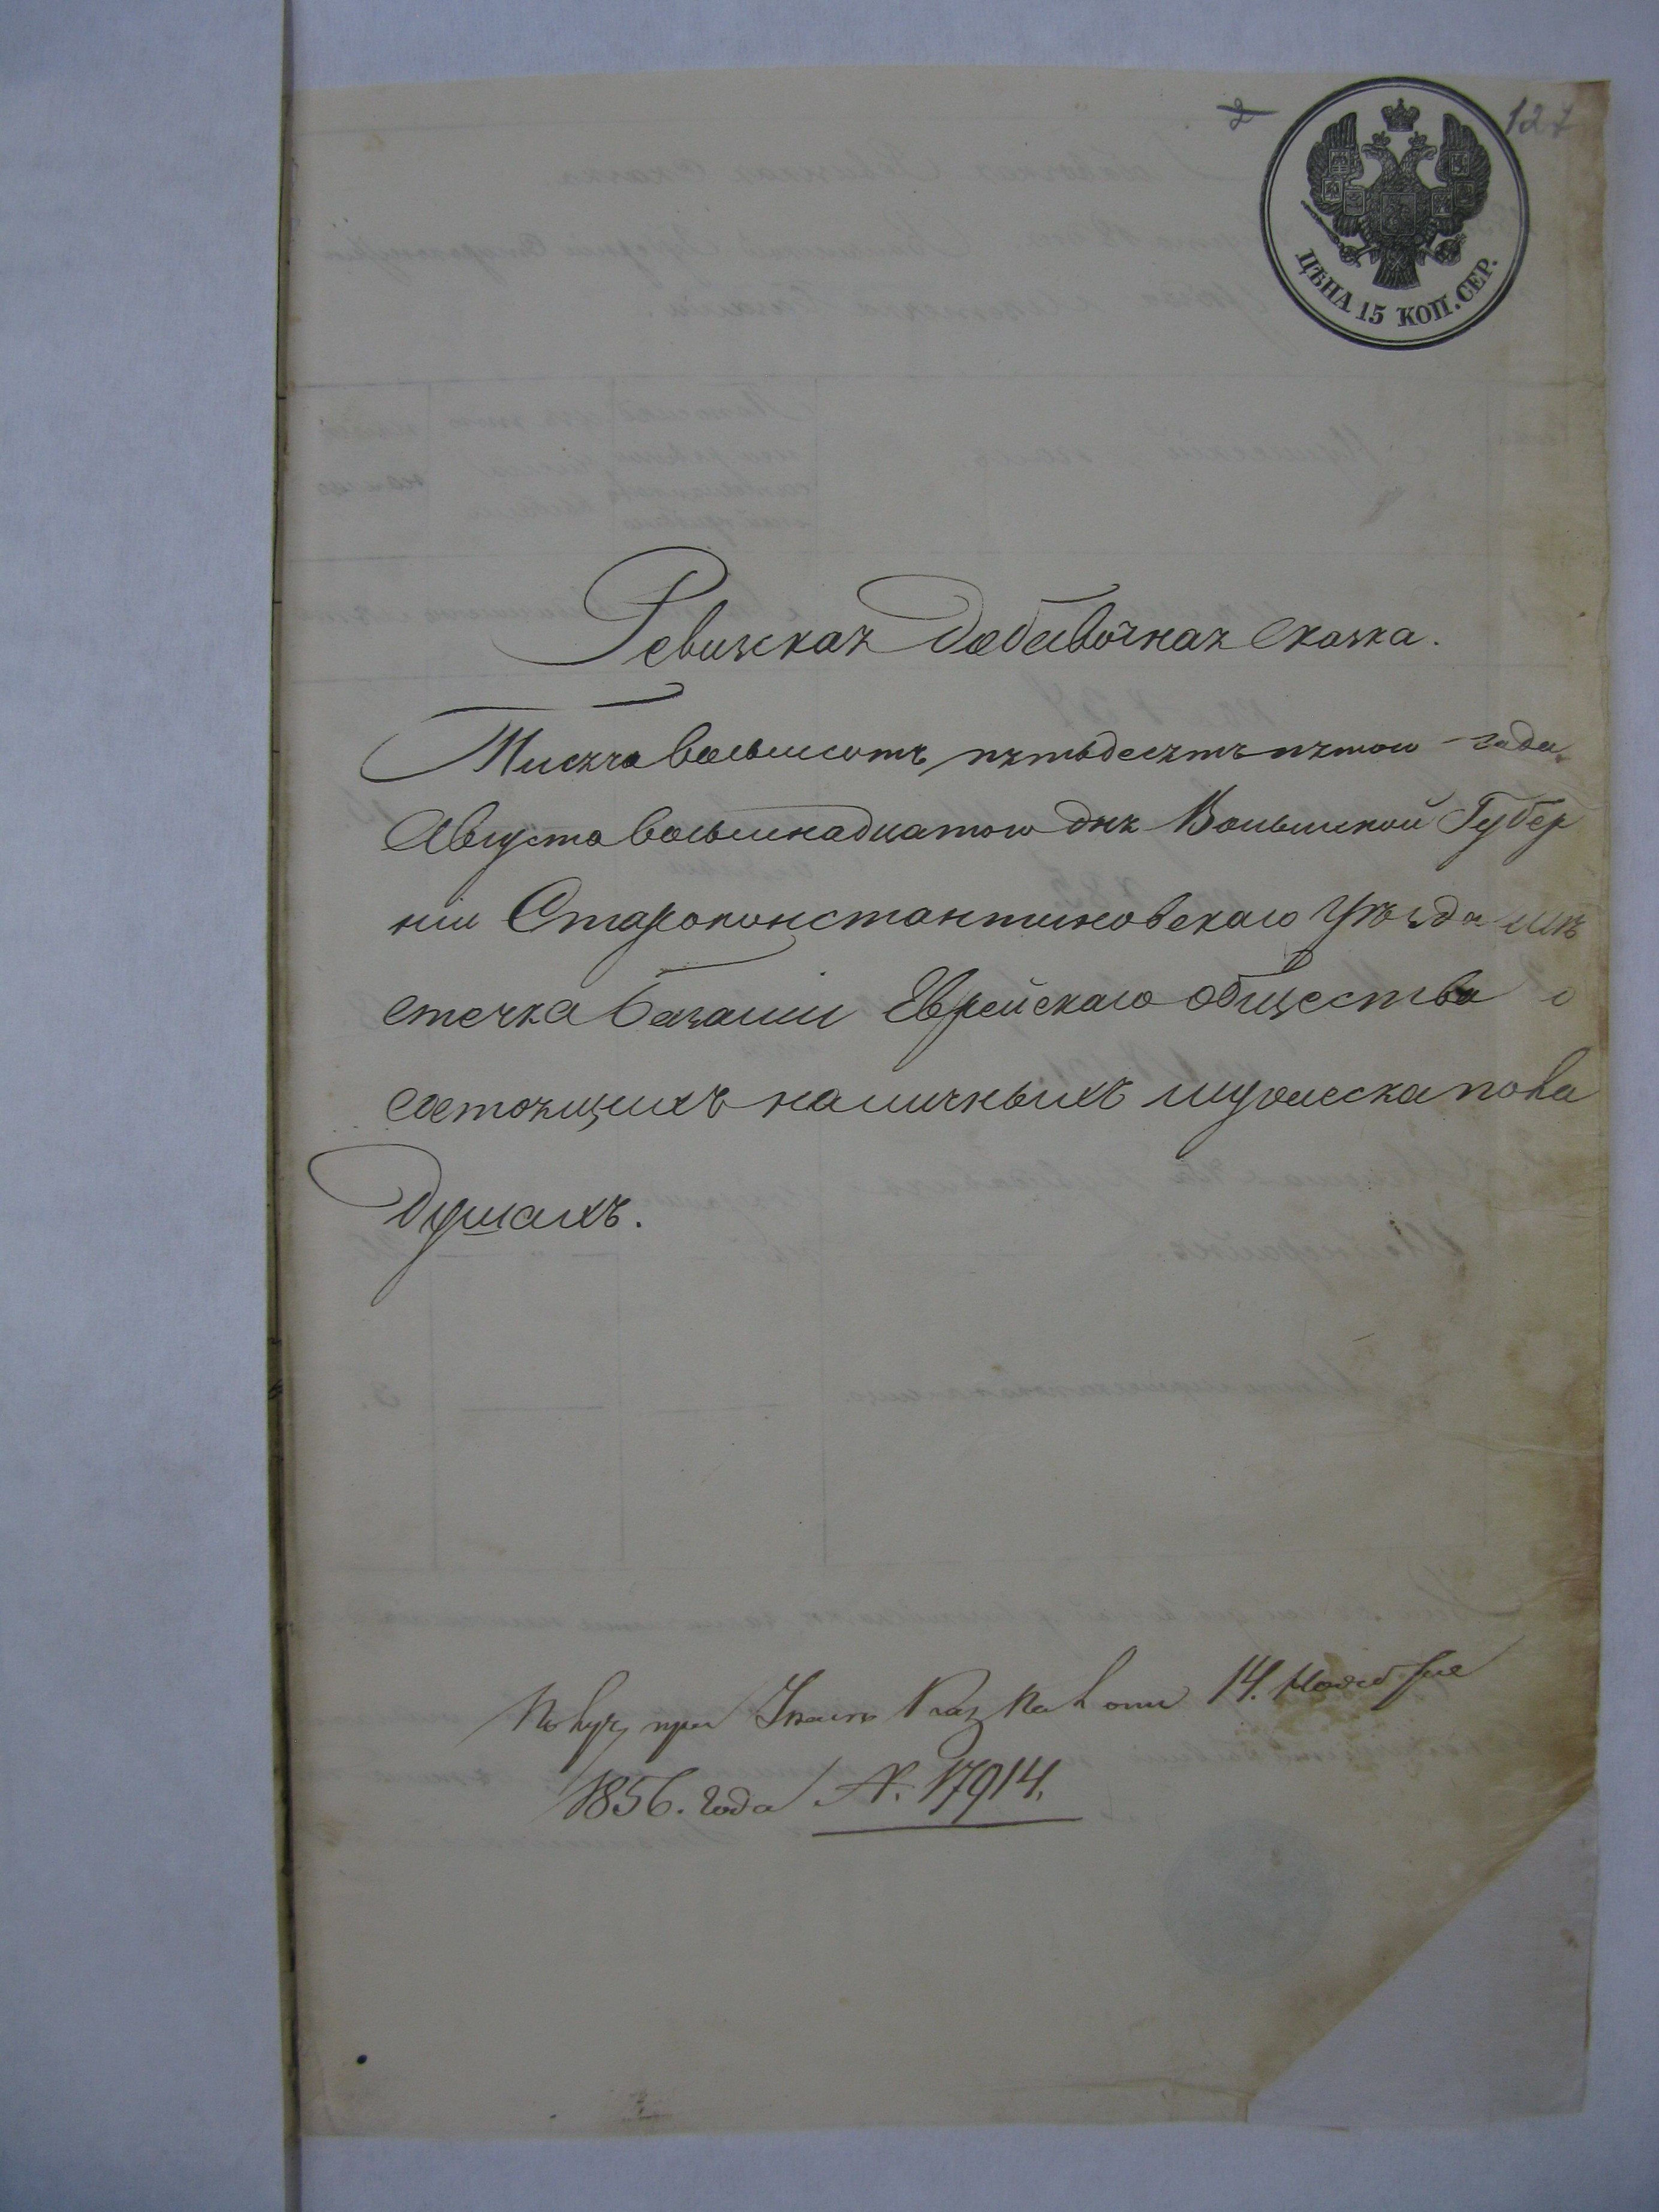 127
ЦѢНА 15 КОП. СЕР.
Ревизская Добавочная сказка.
Тисяча восьмисотъ пятьдесятъ пятого года
Августа восьмнадцатого дня Волынской Губер
ніи Старопонстантиновскаго Уѣзда мѣ
стечка Базаліи Еврейскаго общества о
состоящихъ наличныхъ мужеска пола
душахъ.
при Указѣ 14. Ноября
1856. года №. 17914.